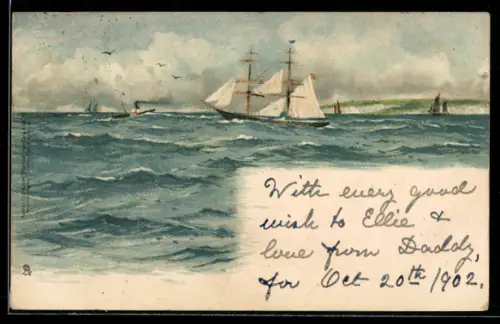 With every good
wish to Ellie &
love from Daddy,
for Oct 20th/902.